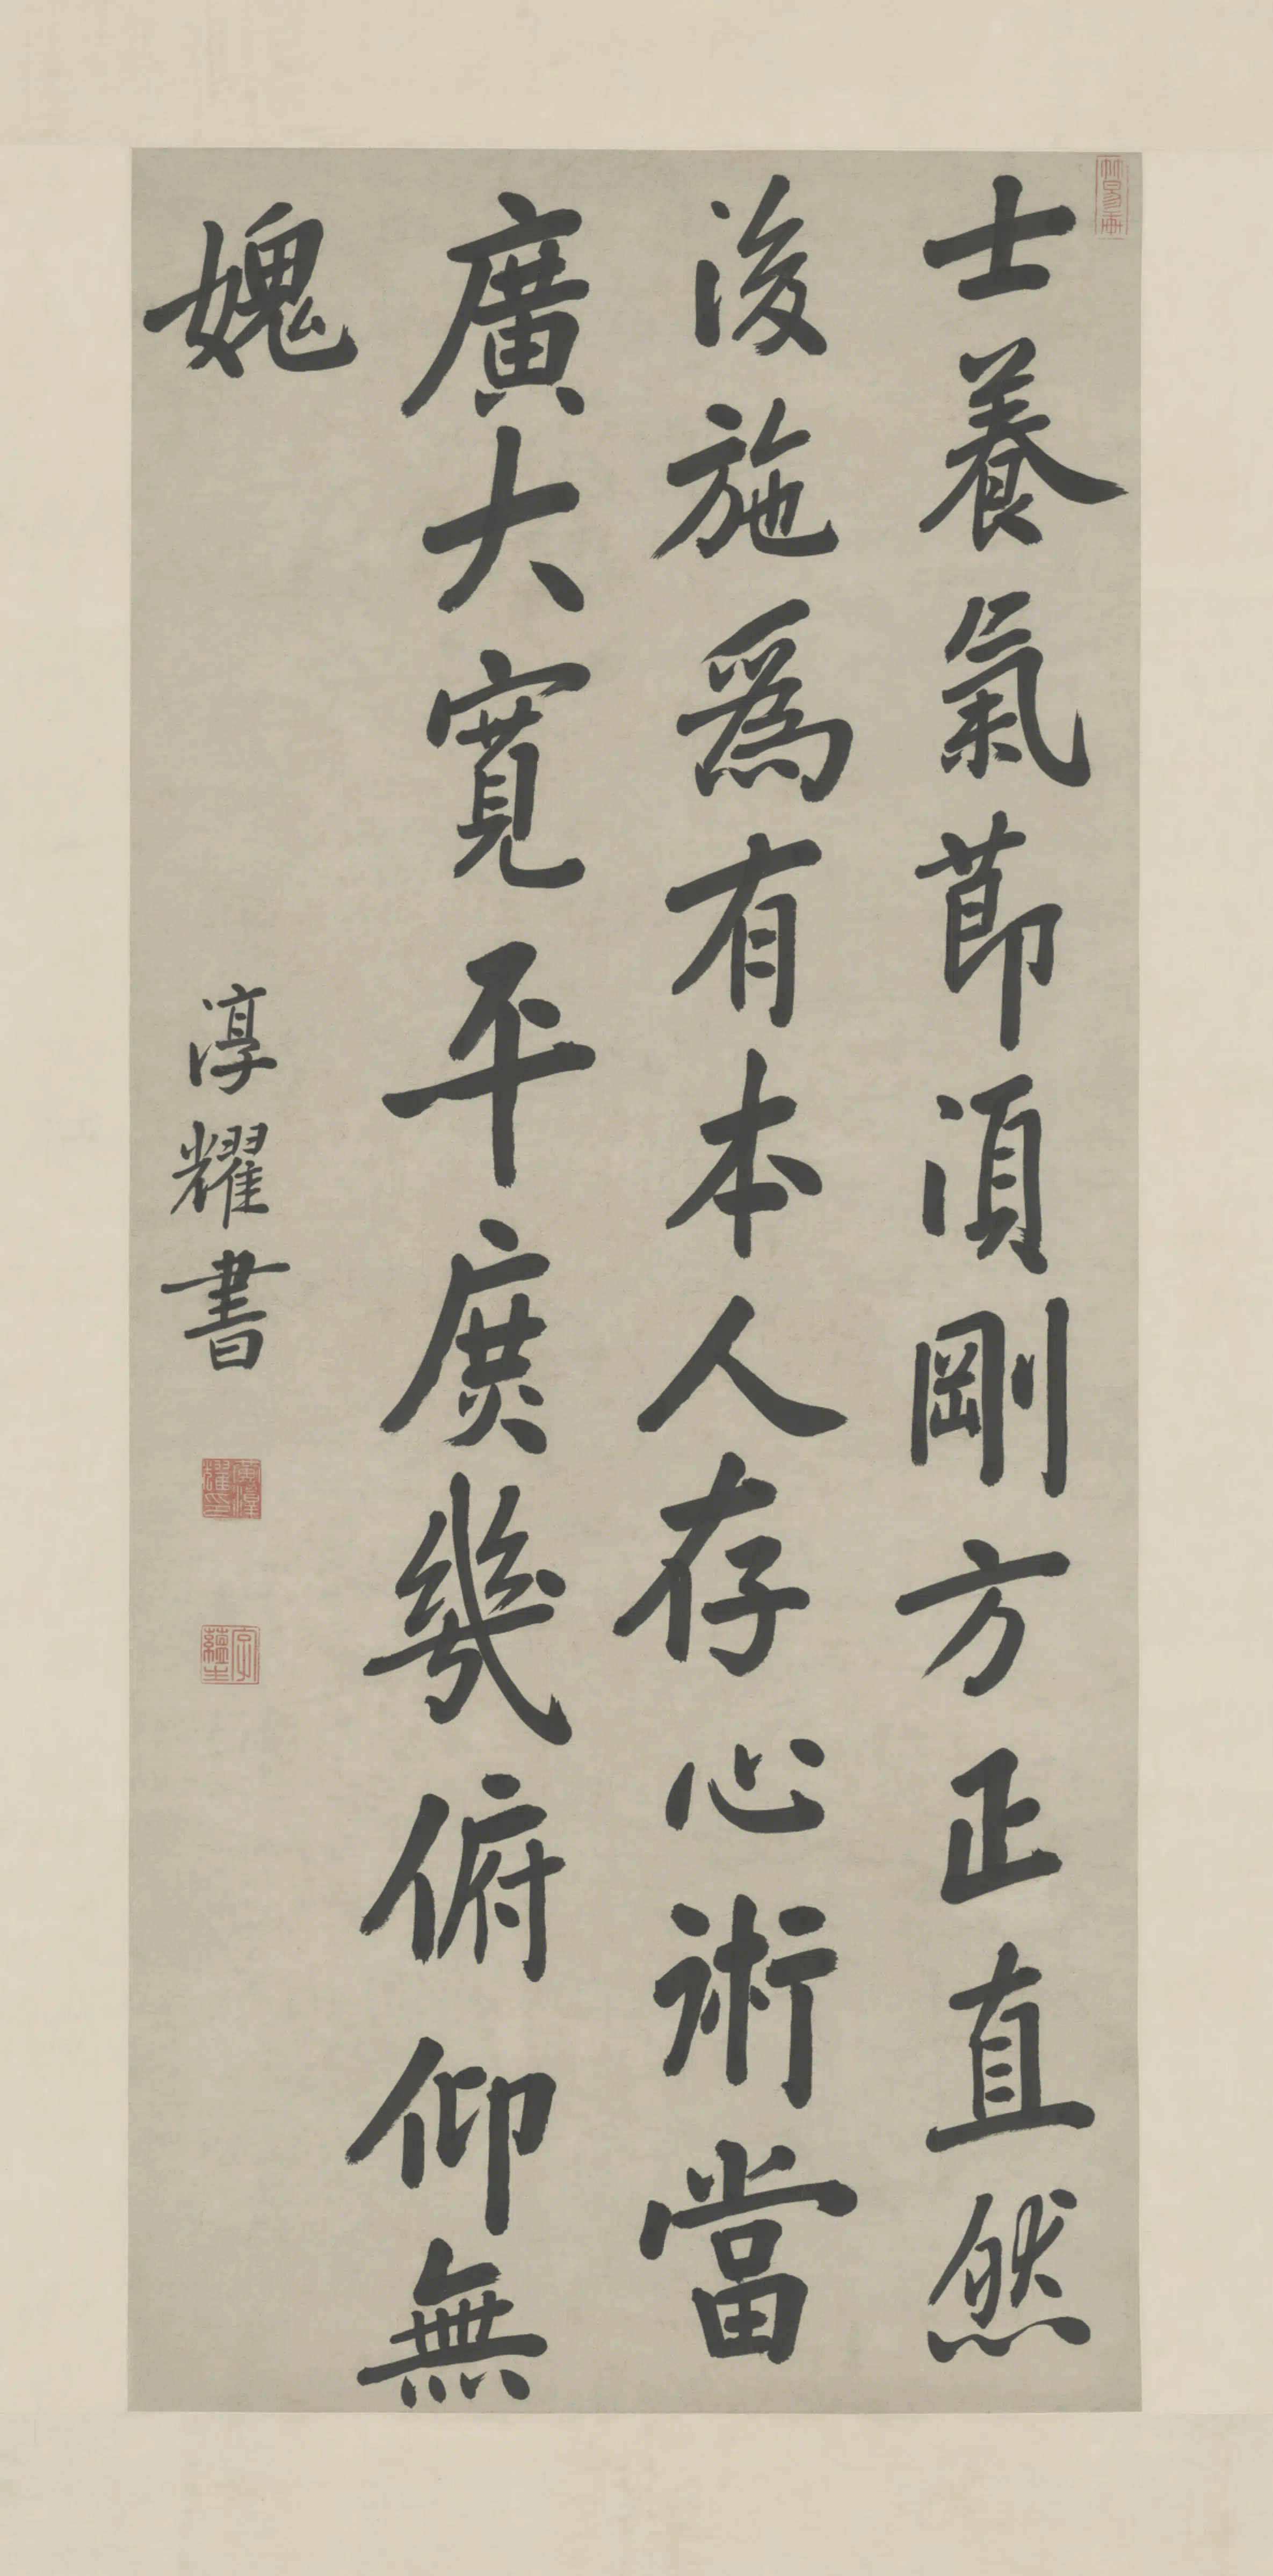 士養氣節須剛方正直然
後施為有本人存心術當
廣大寬平庶幾俯仰無
媿
淳耀書
黃淳耀印
字蘊生